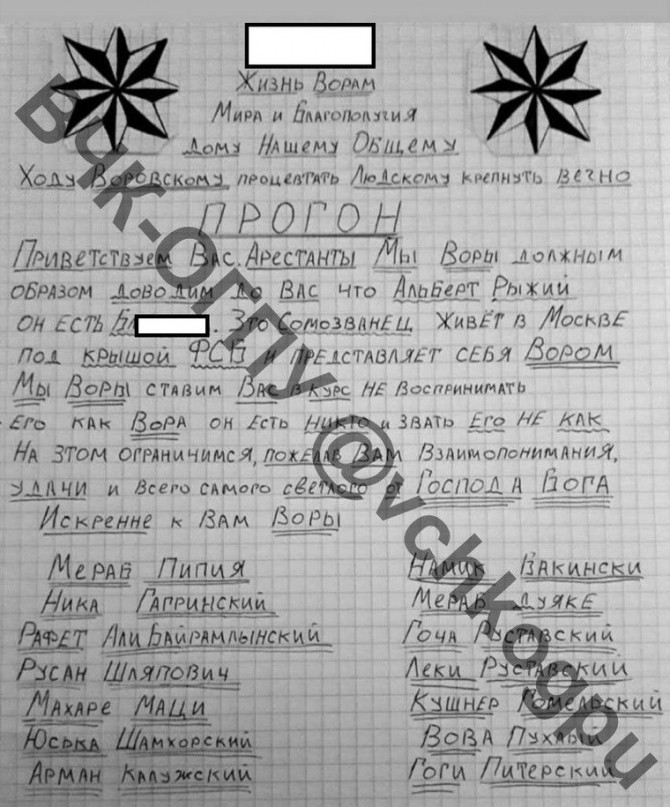 Жизнь Ворам
Мира и Благополучия
Дому Нашему Общему
Ходу Воровскому процветать Людскому крепнуть вечно
ПРОГОН
Приветствуем Вас. Арестанты Мы Воры должным
образом доводим до Вас что Альберт Рыжий
он есть Бл . Это Сомозванец живёт в Москве
под крышой ФСБ и представляет себя Вором
Мы Воры ставим Вас в курс не воспринимать
Его как Вора он есть никто и звать Его не как
На этом ограничимся, пожелав Вам Взаимопонимания,
удачи и всего самого светлого от Господа Бога
Искренне к Вам Воры
Мераб Пипия
Ника Гапринский
Рафет АлиБайрамлынский
Русан Шляпович
Махаре Маци
Юська Шамхорский
Арман Калужский
Намик Бакински
Мераб Дуяке
Гоча Руставский
Леки Руставский
Кушнер Гомельский
Вова Пухлый
Гоги Питерский
ВЧК-ОГПУ @vchkogpu